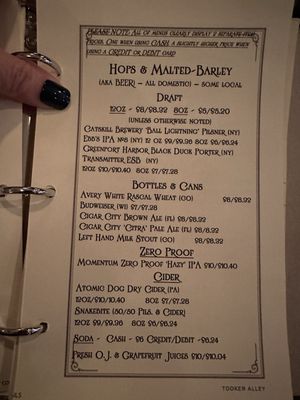 PLEASE NOTE: All of menus clearly display 2 separate item
prices. One when using CASH, a slightly higher price when
using a CREDIT or DEBIT card
Hops & Malted-Barley
(aka BEER – all domestic) – some local
Draft
12oz - $8/$8.32 8oz - $5/$5.20
(unless otherwise noted)
Catskill Brewery 'Ball Lightning' Pilsner (NY)
Ebb's IPA No8 (NY) 12 oz $9/$9.36 8oz $6/$6.24
Greenport Harbor Black Duck Porter (NY)
Transmitter ESB (NY)
12oz $10/$10.40 8oz $7/$7.28
Bottles & Cans
Avery White Rascal Wheat (CO) $8/$8.32
Budweiser (WI) $7/$7.28
Cigar City Brown Ale (FL) $8/$8.32
Cigar City 'Citra' Pale Ale (FL) $8/$8.32
Left Hand Milk Stout (CO) $8/$8.32
Zero Proof
Momentum Zero Proof 'Hazy' IPA $10/$10.40
Cider
Atomic Dog Dry Cider (PA)
12oz/$10/10.40 8oz $7/$7.28
Snakebite (50/50 Pils. & Cider)
12oz $9/$9.36 8oz $6/$6.24
Soda - Cash - $6 Credit/Debit -$6.24
Fresh O.J. & Grapefruit Juices $10/$10.04
TOOKER ALLEY